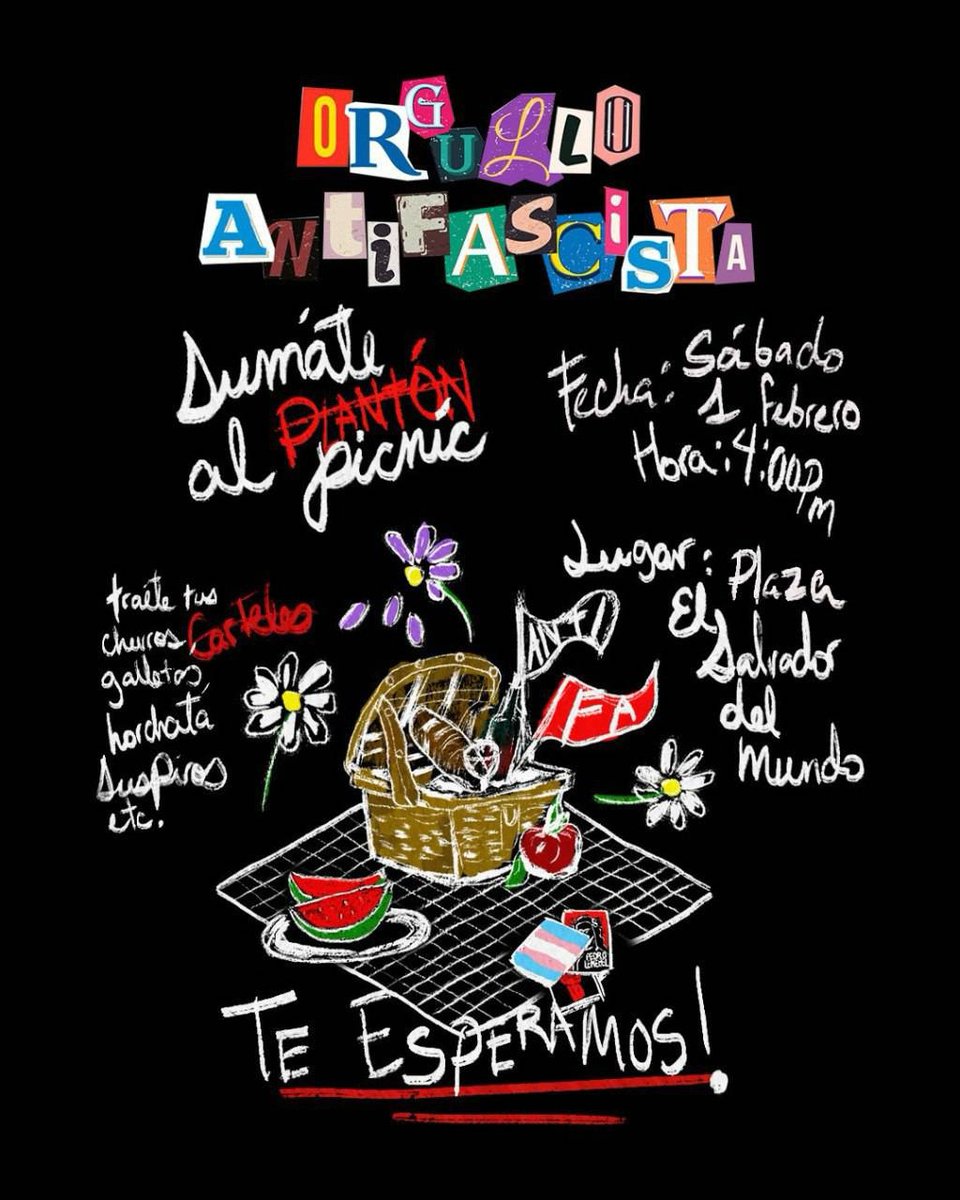 ORGULLO
ANtiFAScisTA
Sumáte
al PLANTÓN
picnic
Fecha: Sábado
1 febrero
Hora: 4:00pm
Lugar: Plaza
El
Salvador
del
Mundo
traete tus
churros, Carteles
galletas,
horchata,
Suspiros
etc.
ANTI
FA
PEDRO
LEMEBEL
TE ESPERAMOS!